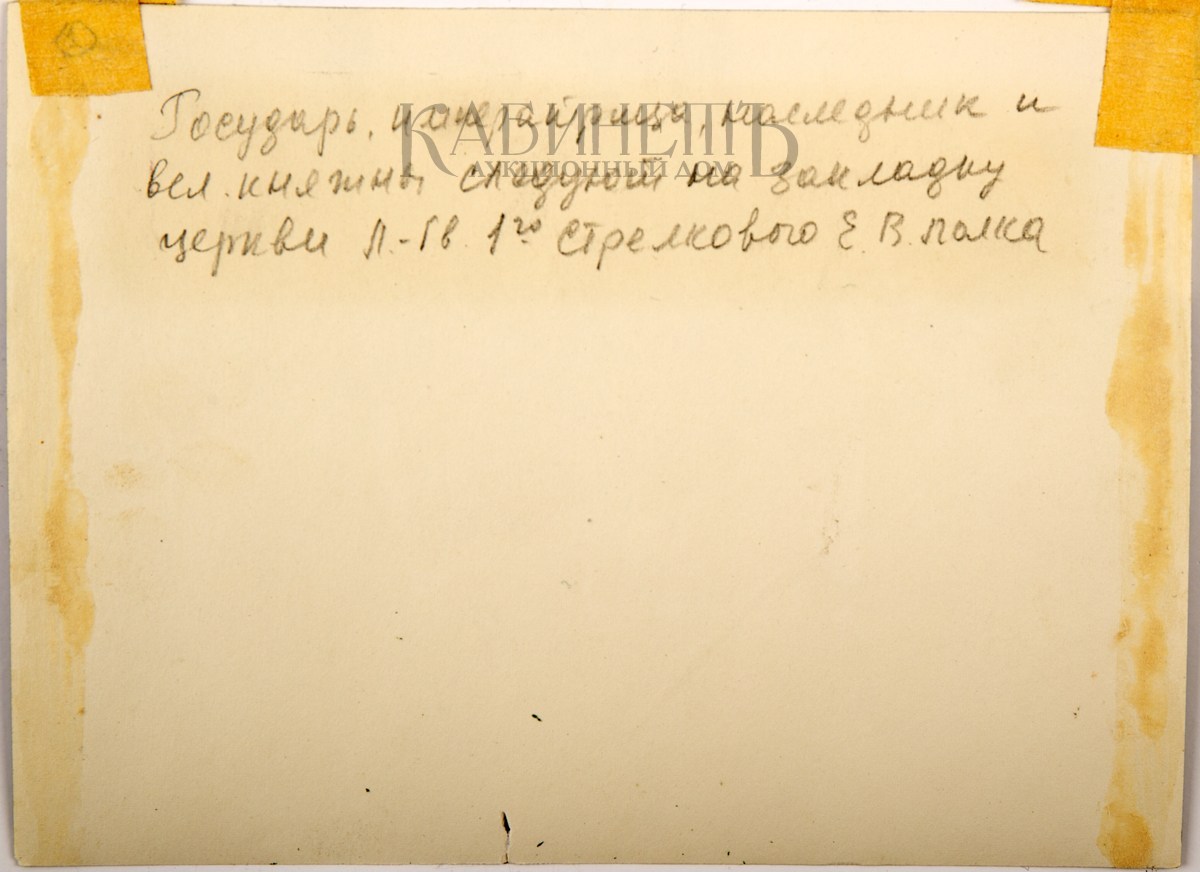 Государь, императрица, наследник и
вел. княжны следуют на закладку
церкви Л.-Гв. 1го Стрелкового Е. В. полка
КАБИНЕТЪ
АУКЦИОННЫЙ ДОМ